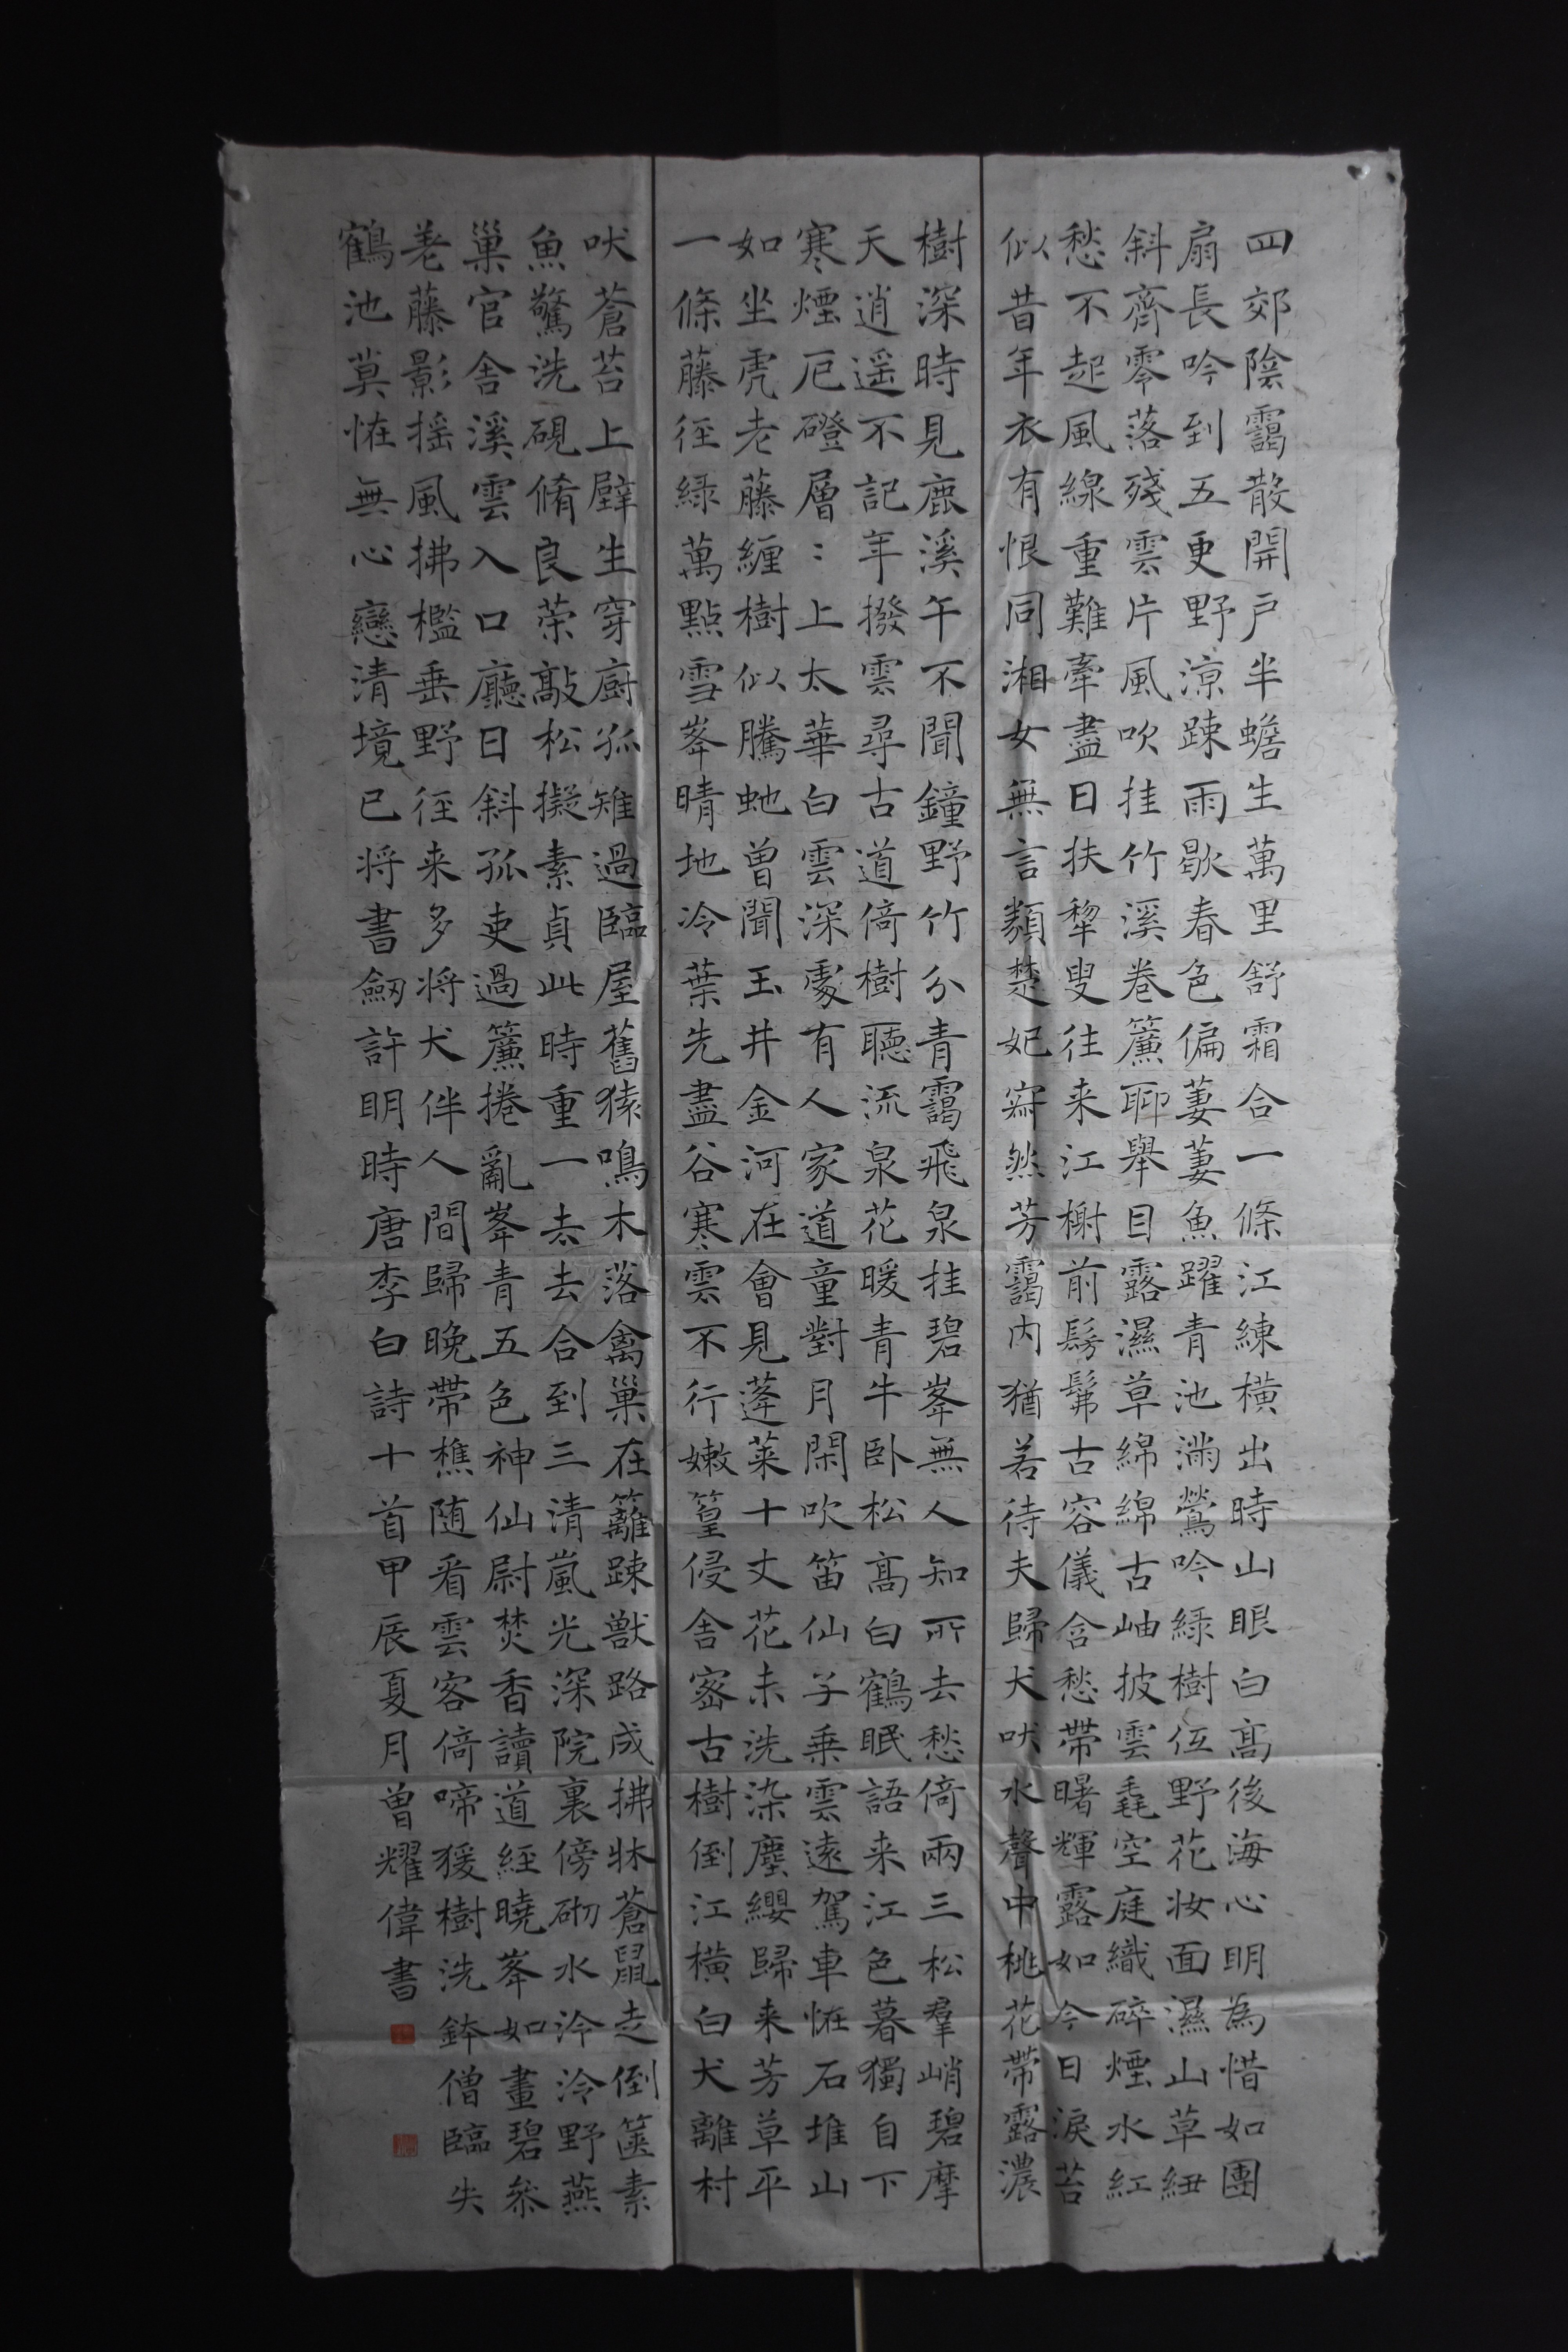 四郊陰靄散開戶半蟾生萬里舒霜合一條江練橫出時山眼白高後海心明為惜如團
扇長吟到五更野涼踈雨歇春色偏萋萋魚躍青池滿鶯吟綠樹低野花妝面濕山草紐
斜齊零落殘雲片風吹挂竹溪卷簾聊舉目露濕草綿綿古岫披雲毳空庭織碎煙水紅
愁不起風線重難牽盡日扶犂叟往来江樹前髣髴古容儀含愁帶曙輝露如今日淚苔
似昔年衣有恨同湘女無言類楚妃寂然芳靄內猶若待夫歸犬吠水聲中桃花帶露濃
樹深時見鹿溪午不聞鐘野竹分青靄飛泉挂碧峯無人知所去愁倚兩三松羣峭碧摩
天逍遥不記年撥雲尋古道倚樹聽流泉花暖青牛卧松高白鶴眠語来江色暮獨自下
寒煙厄磴層〻上太華白雲深處有人家道童對月閑吹笛仙子乘雲遠駕車怪石堆山
如坐虎老藤纏樹似騰虵曾聞玉井金河在會見蓬萊十丈花未洗染塵纓歸来芳草平
一條藤徑綠萬點雪峯晴地冷葉先盡谷寒雲不行嫩篁侵舍密古樹倒江橫白犬離村
吠蒼苔上壁生穿廚孤雉過臨屋舊猿鳴木落禽巢在籬踈獸路成拂牀蒼鼠走倒篋素
魚驚洗硯脩良策敲松擬素貞此時重一去去合到三清嵐光深院裏傍砌水泠泠野燕
巢官舍溪雲入口廳日斜孤吏過簾捲亂峯青五色神仙尉焚香讀道經曉峯如畫碧參
差藤影搖風拂檻垂野徑来多將犬伴人間歸晚帶樵随看雲客倚啼猨樹洗鉢僧臨失
鶴池莫怪無心戀清境已將書劒許明時唐李白詩十首甲辰夏月曾耀偉書